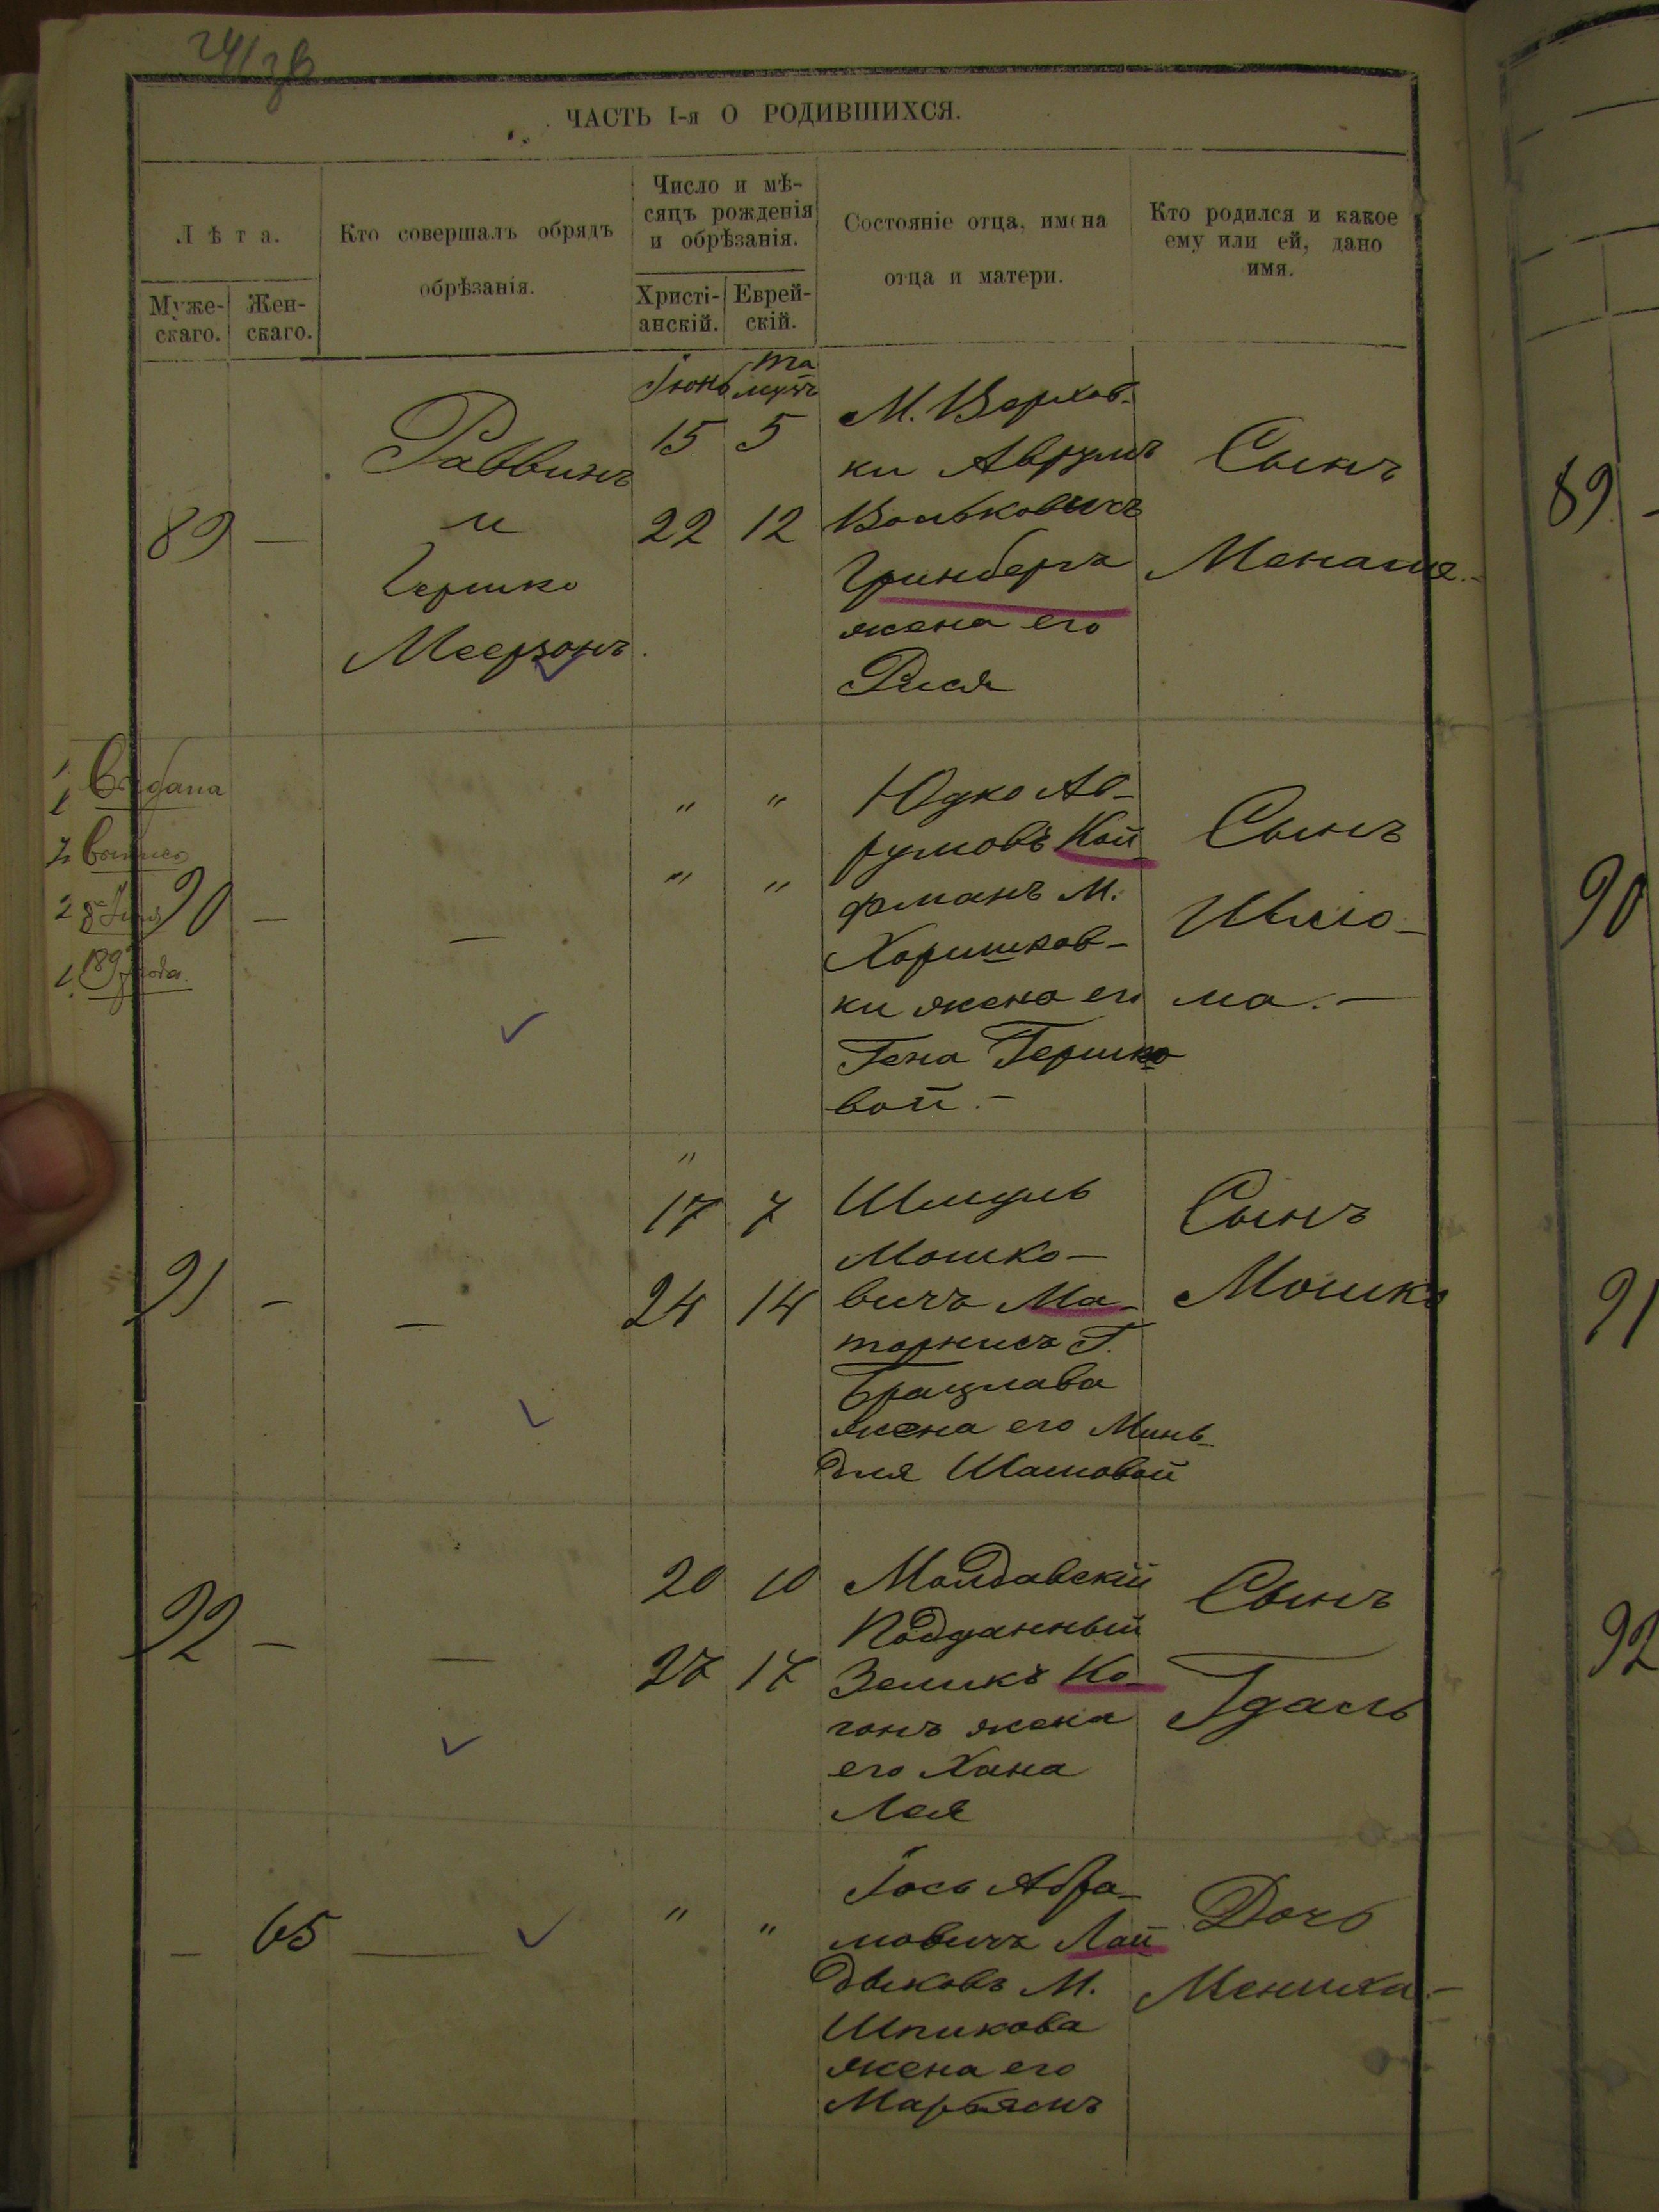 ЧАСТЬ I-я О РОДИВШИХСЯ.
Лѣта.
Муже-
скаго.
Жен-
скаго.
Кто совершалъ обрядъ
обрѣзанія.
Число и мѣ-
сяцъ рожденія
и обрѣзанія.
Христі-
анскій.
Еврей-
скій.
Состояніе отца, имена
отца и матери.
Кто родился и какое
ему или ей, дано
имя.
89 —
Раввинъ
и
Гершко
Меерзонъ
Іюнь
15
22
Та
музъ
5
12
М. Верхов-
ки Аврумъ
Волькович
Гринбергъ
жена его
Рися
Сынъ
Менаше.
89
90 —
—
" "
" "
Юдко Ав-
румовъ Кой
фманъ М.
Хоришков-
ки жена его
Гена Гершко
вой.-
Сынъ
Шлио-
ма.-
90
91 —
—
"
17 7
24 14
Шмуль
Мошко-
вичъ Ма-
торнисъ Г.
Брацлава
жена его Минь-
для
Сынъ
Мошко
91
92 —
—
20 10
27 17
Молдавскій
Подданный
Зеликъ Ко-
ганъ жена
его Хана
Лея
Сынъ
Гдаль
92
— 65
—
" "
Іось Абра-
мовичъ Лай
дыковъ М.
Шпикова
жена его
Марьямъ
Дочь
Мениха.-